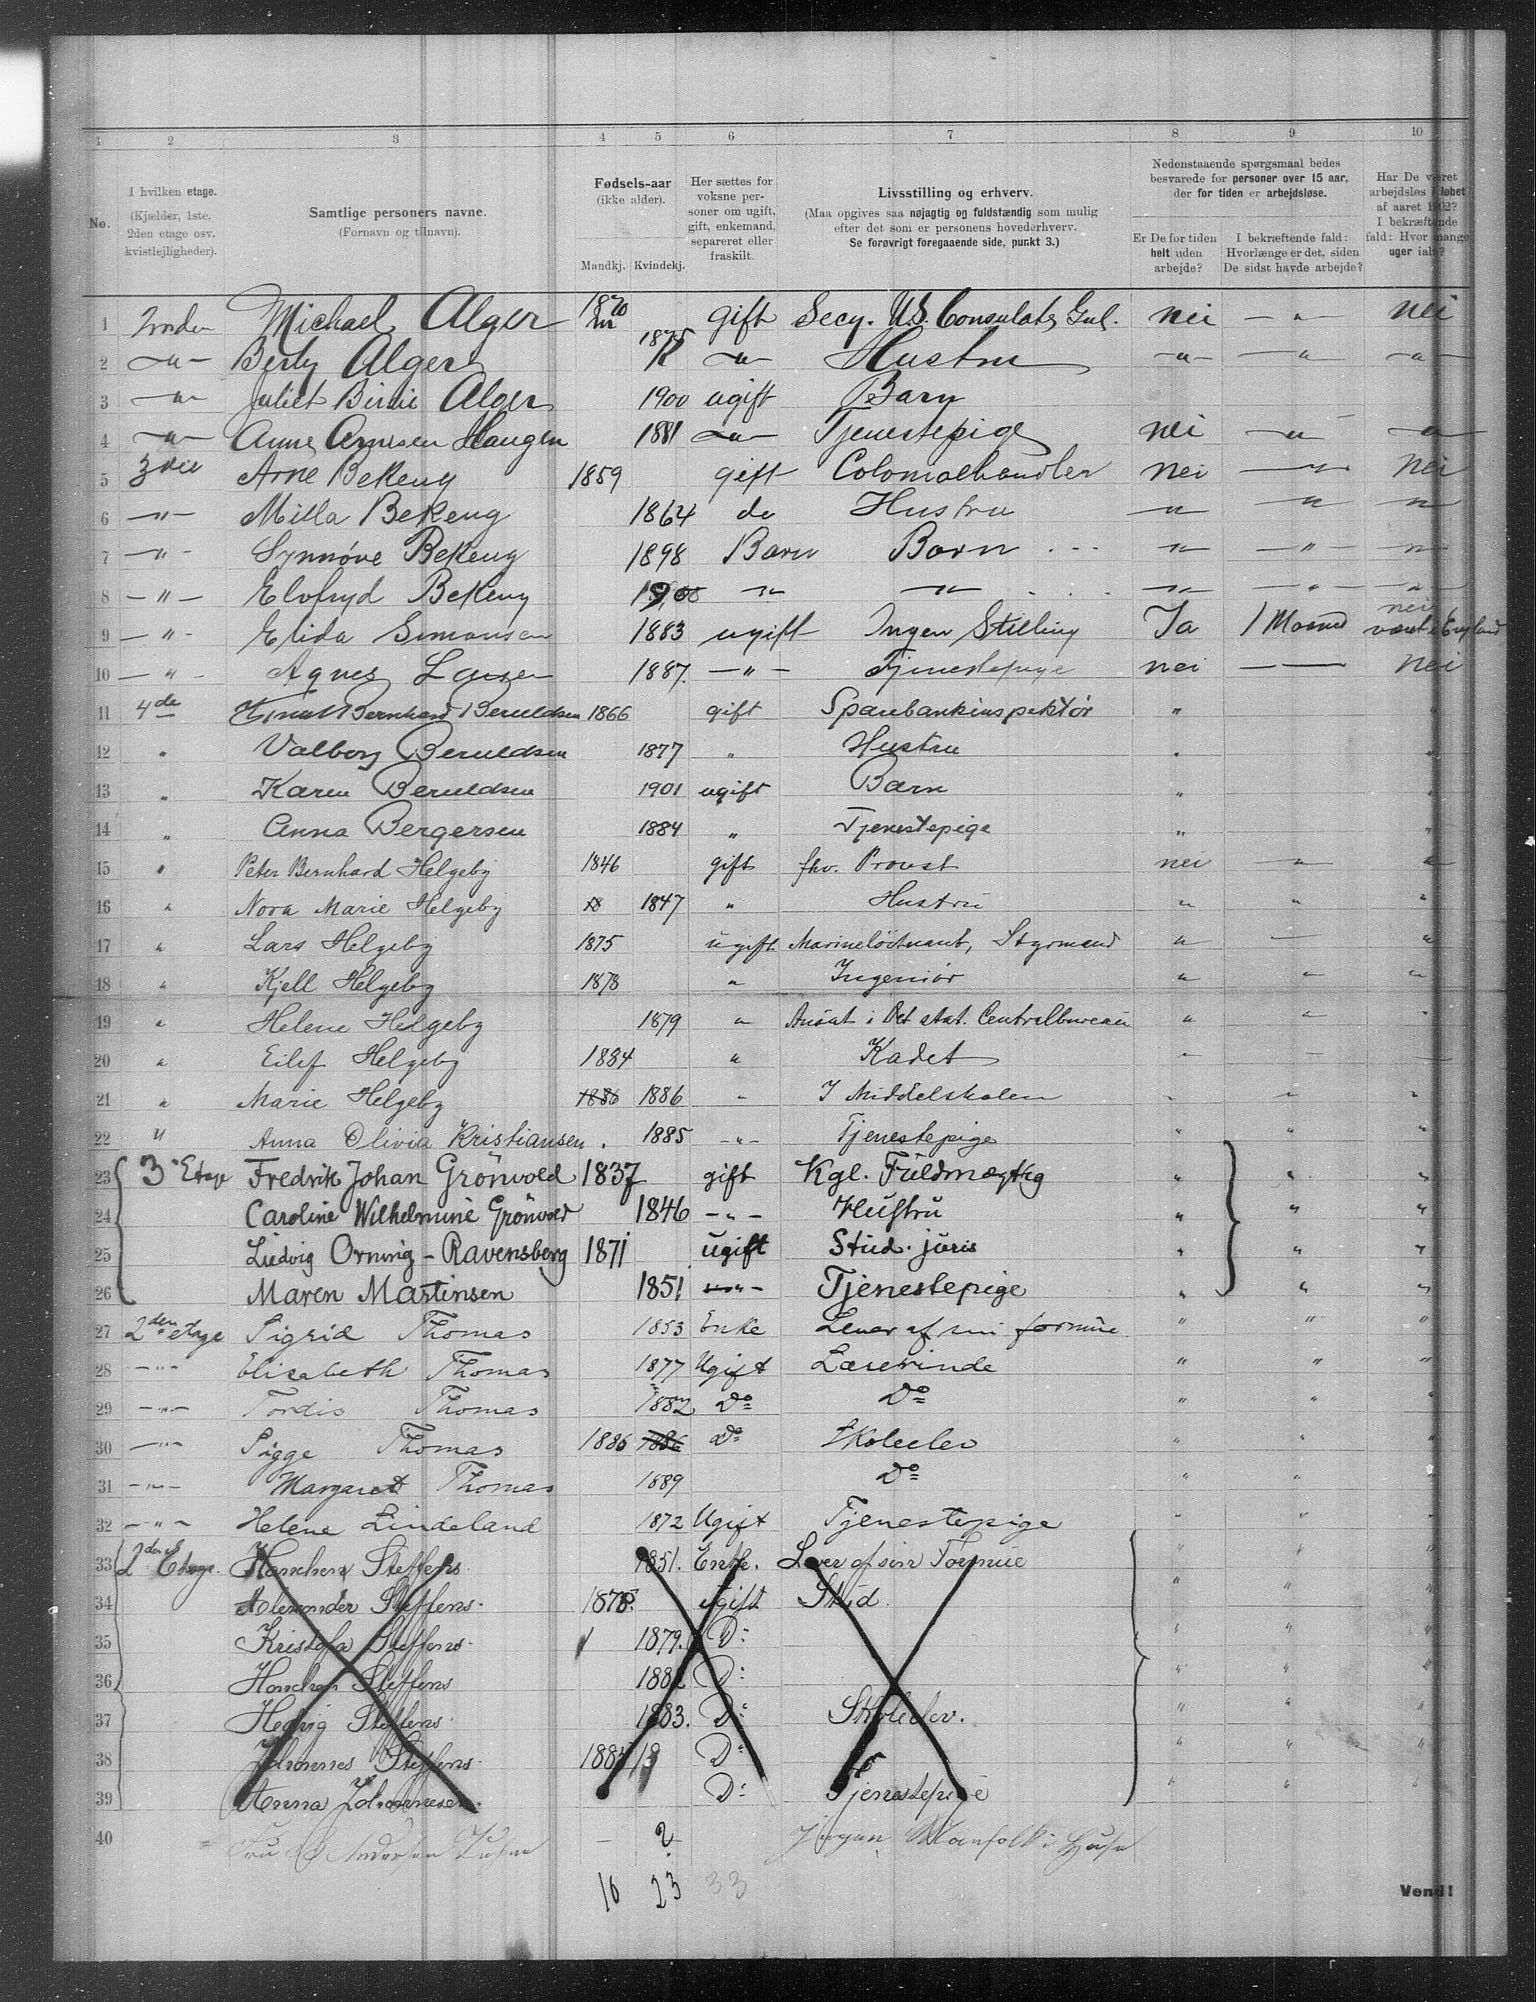 1 2 3 4 5 6 7 8 9 10
No.
I hvilken etage.
(Kjælder, 1ste, 2den etage osv. kvistlejligheder).
Samtlige personers navne.
(Fornavn og tilnavn).
Fødsels-aar
(ikke alder).
Mandkj. Kvindekj.
Her sættes for voksne personer om ugift, gift, enkemand, separeret eller fraskilt.
Livsstilling og erhverv.
(Maa opgives saa nøjagtig og fuldstændig som mulig efter det som er personens hovederhverv.
Se forøvrigt foregaaende side, punkt 3.)
Nedenstaaende spørgsmaal bedes besvarede for personer over 15 aar, der for tiden er arbejdsløse.
Er De for tiden helt uden arbejde?
I bekræftende fald: Hvorlænge er det, siden De sidst havde arbejde?
Har De været arbejdsløs i løbet af aaret 1902? I bekræftende fald: Hvor mange uger ialt?
1 Michael Alger 1870 gift Secy. U.S. Consulate Gnl. nei — " — nei
2 — " — Berly Alger 1875 — " — Hustru — " — — " — — " —
3 — " — Juliet Birnie Alger 1900 ugift Barn
4 — " — Anne Arnesen Haugen 1881 — " — Tjenestepige nei — " — — " —
5 3die Arne Bekeng 1859 gift Colonialhandler Nei — " — Nei
6 — " — Milla Bekeng 1864 do Hustru — " — — " — — " —
7 — " — Synnøve Bekeng 1898 Barn Barn — " — — " — — " —
8 — " — Elvfryd Bekeng 1900 — " — — " — — " — — " — — " —
9 — " — Elida Simonsen 1883 ugift Ingen Stilling Ja 1 Maaned nei været i England
10 — " — Agnes Larsen 1887. — " — Tjenestepige nei — — nei
11 4de Knut Bernhard Beruldsen 1866 gift Sparebankinspektør " "
12 " Valborg Beruldsen 1877 " Hustru " "
13 " Karen Beruldsen 1901 ugift Barn " "
14 " Anna Bergersen 1884 " Tjenestepige " "
15 " Peter Bernhard Helgeby 1846 gift fhv. Provst nei — " — "
16 " Nora Marie Helgeby 1847 " Hustru " " "
17 " Lars Helgeby 1875 ugift Marineløitnant, Styrmand " — "
18 " Kjell Helgeby 1878 " Ingeniør " " "
19 " Helene Helgeby 1879 " Ansat i Det stat. Centralbureau " " "
20 " Eilif Helgeby 1884 " Kadet " — —
21 " Marie Helgeby 1886 1886 " I Middelskolen " " "
22 " Anna Olivia Kristiansen. 1885 — " — Tjenestepige " " "
23 3 Etage Fredrik Johan Grönvold 1837 gift Kgl. Fuldmægtig " " "
24 Caroline Wilhelmine Grönvold 1846 — " — Hustru " " "
25 Ludvig Orning - Ravensberg 1871 ugift Stud. juris " " "
26 Maren Martinsen 1851 — " — Tjenestepige " " "
27 2den etage Sigrid Thomas 1853 Enke Lever af sin formue " " "
28 — " — Elisabeth Thomas 1877 Ugift Lærerinde " " "
29 — " — Tordis Thomas 1882 Do Do " " "
30 — " — Sigge Thomas 1886 1886 Do Skoleelev " " "
31 — " — Margaret Thomas 1889 Do " " "
32 — " — Helene Lindeland 1872 Ugift Tjenestepige " " "
33 2den Etage. Hanchen Steffens 1851. Enke. Lever af sin Formue " " "
34 Alexander Steffens. 1878. ugift Stud. " " "
35 Kristofa Steffens. 1879. Do " " "
36 Hanchen Steffens 1882 Do " " "
37 Hedvig Steffens. 1883. Do Skoleelev. " " "
38 Johannes Steffens. 1885 Do " " "
39 Anna Johannesen. Do Tjenestepige " " "
40 Fru Andersen — ? Ingen Manfolk i Huse
16 23 33
Vend!